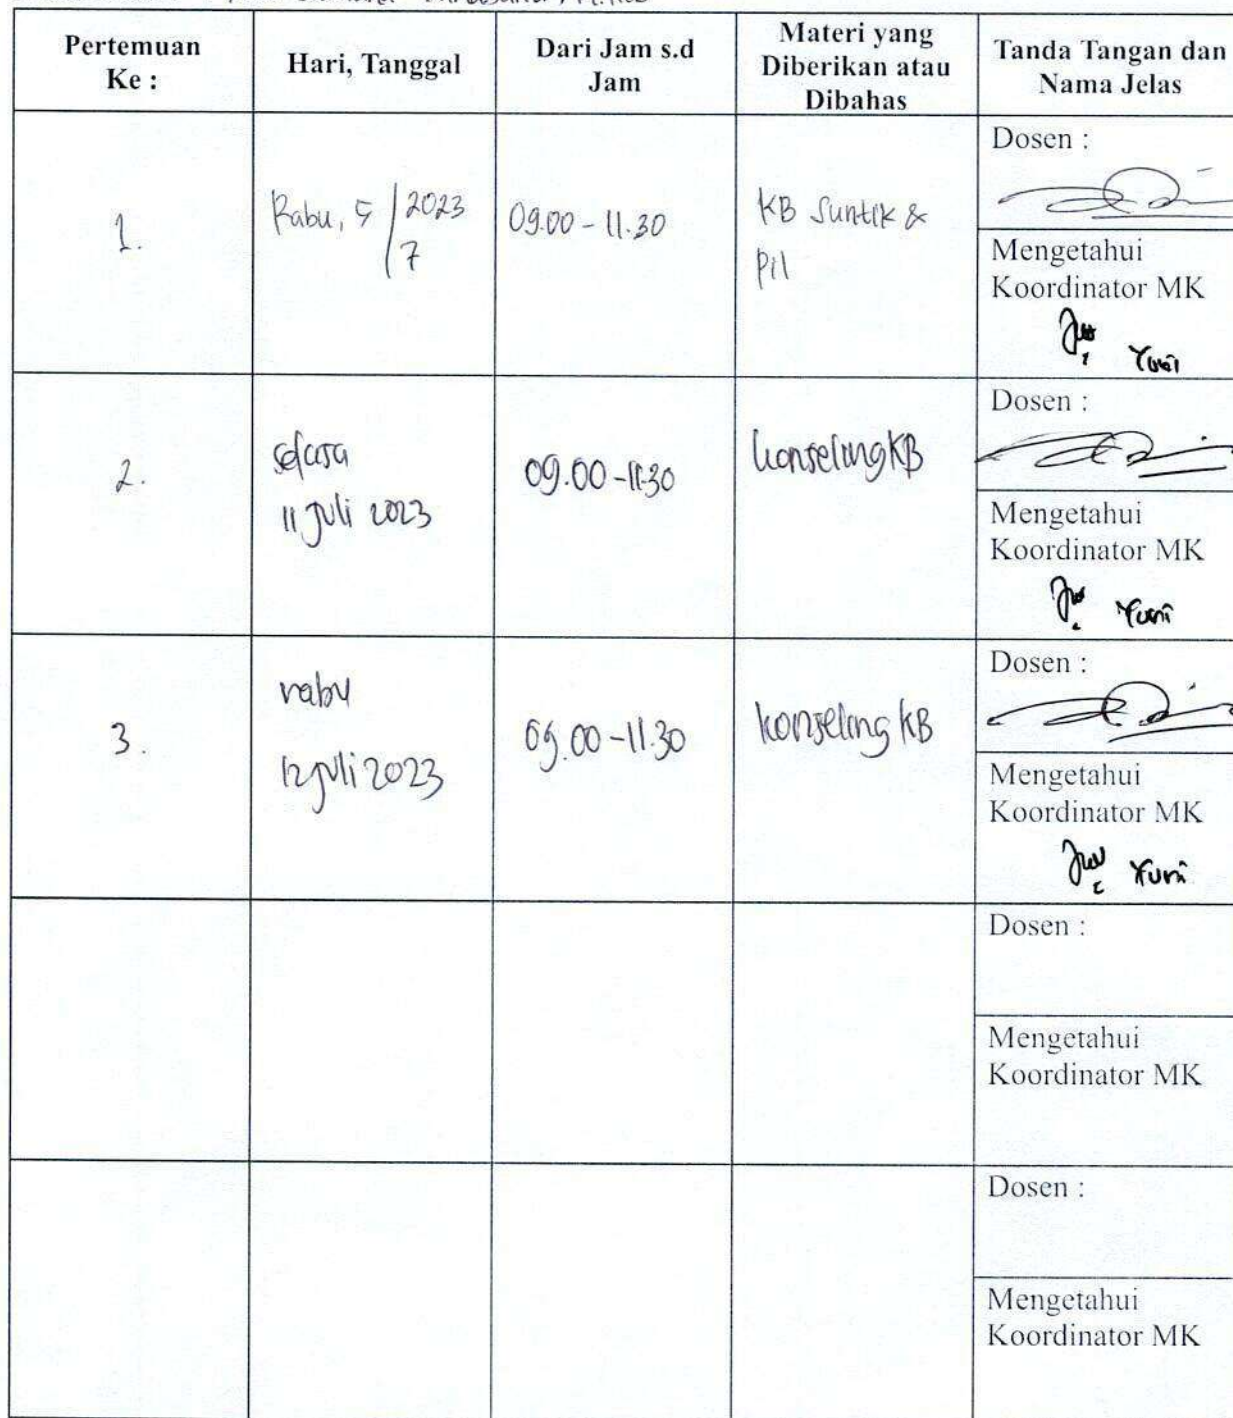 Pertemuan Ke :
Hari, Tanggal
Dari Jam s.d Jam
Materi yang Diberikan atau Dibahas
Tanda Tangan dan Nama Jelas
1.
Rabu, 5/7 2023
09.00 - 11.30
KB Suntik &
Pil
Dosen :
Mengetahui
Koordinator MK
Yuni
2.
selasa
11 Juli 2023
09.00 - 11.30
konseling KB
Dosen :
Mengetahui
Koordinator MK
Yuni
3.
rabu
12 juli 2023
09.00 - 11.30
konseling KB
Dosen :
Mengetahui
Koordinator MK
Yuni
Dosen :
Mengetahui
Koordinator MK
Dosen :
Mengetahui
Koordinator MK